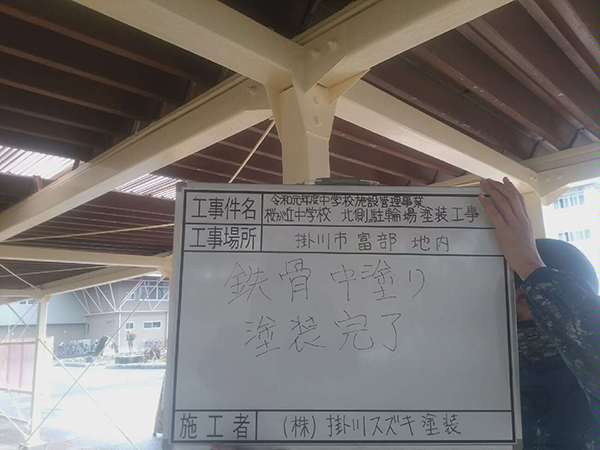 工事件名
令和元年度中学校施設管理事業
桜が丘中学校 北側駐輪場塗装工事
工事場所 掛川市富部 地内
鉄骨中塗り
塗装完了
施工者 (株)掛川スズキ塗装